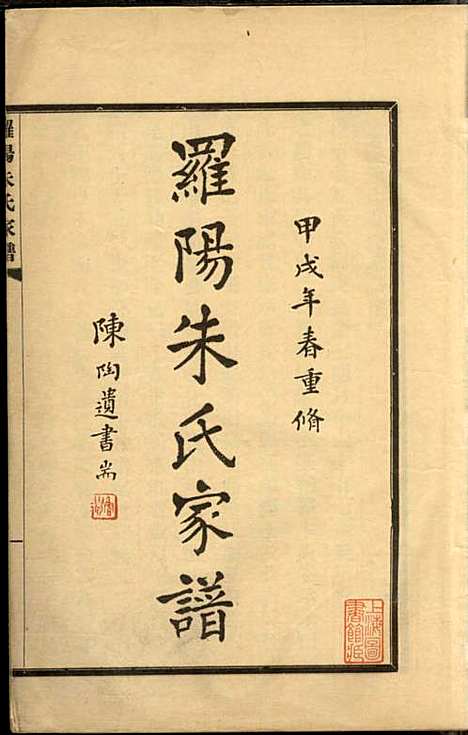 甲戌年春重脩
羅陽朱氏家譜
陳陶遺書耑
羅陽朱氏家譜
上海圖書館藏